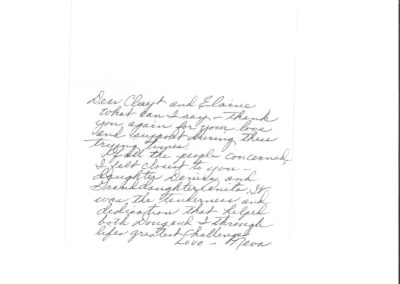 Dear Clayt and Elaine
What can I say - thank
you again for your love
and support during these
trying times.
Of all the people concerned,
I felt closest to you -
daughter Denise and
Granddaughter Anita. It
was the tenderness and
dedication that helped
both Doug and I through
life's greatest challenges
Love - Neva